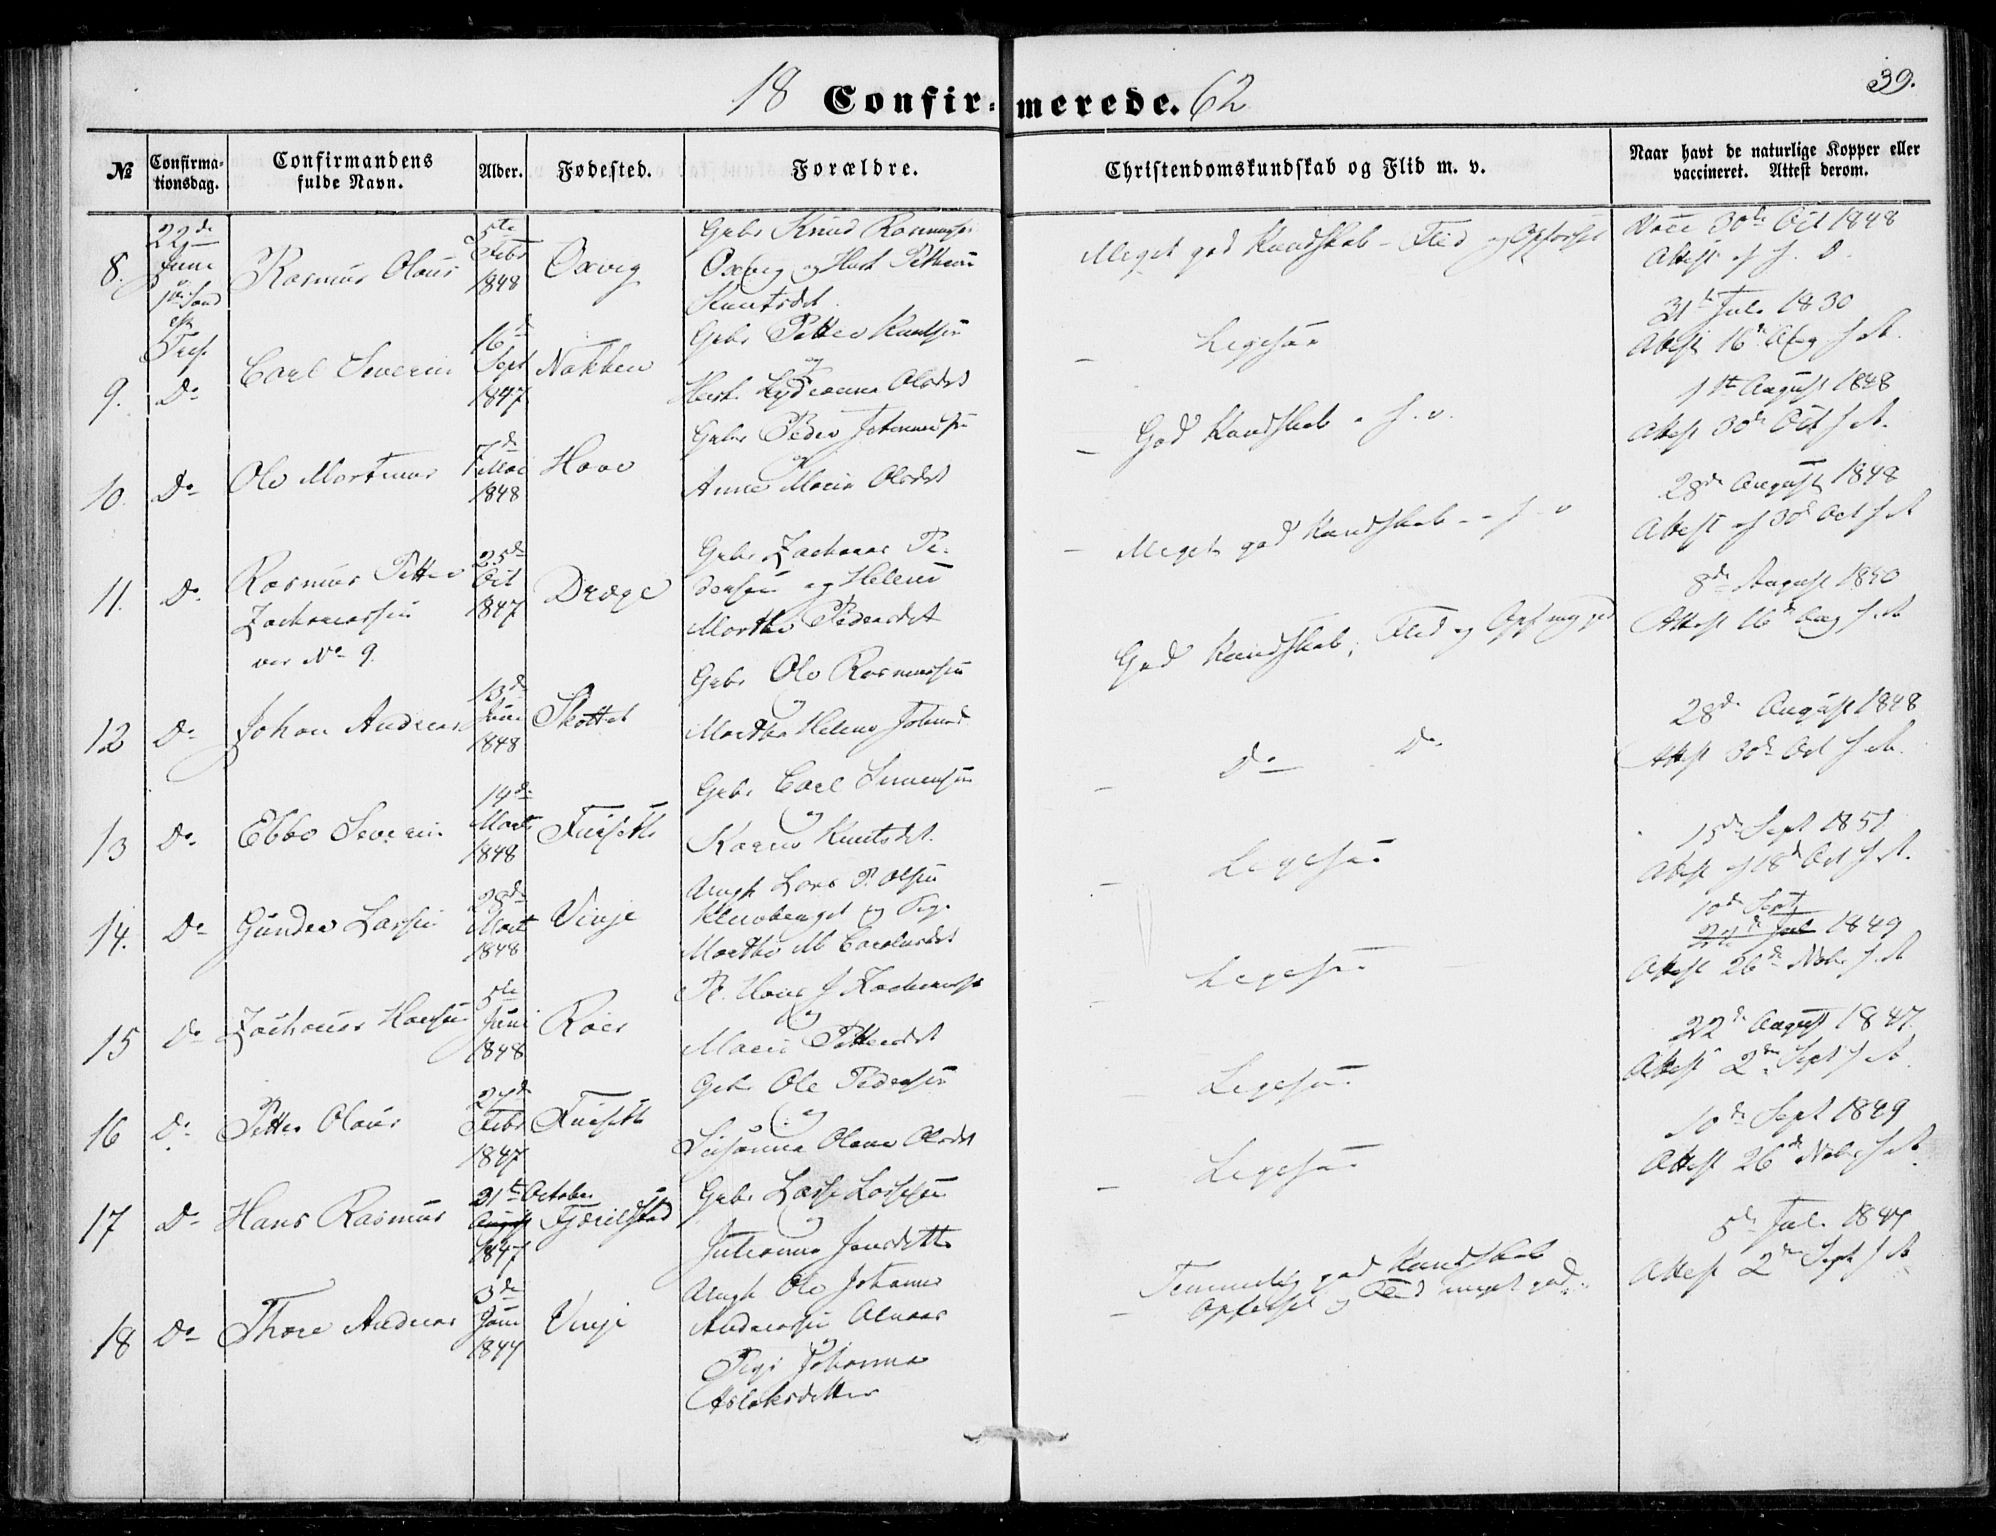 39.
18 Confir- merede. 62
№
Confirma-
tionsdag.
Confirmandens
fulde Navn.
Alder.
Fødested.
Forældre.
Christendomskundskab og Flid m. v.
Naar havt de naturlige Kopper eller
vaccineret. Attest derom.
8.
22de
Juni
Rasmus Olaus
5te
Febr
1848
Oxvig
Gbr Knud Rasmuss
Oxvig og Hust
Knutsdt
Meget god Kundskab - Flid og Opførsel
Vacc 30te Oct 1848
Attest af s. D.
9.
Do
Carl Severin
16d
Sept
1847
Nakken
Gbr Petter Knudsen
og
Hust. Olsdt
Ligesaa
31te Juli 1850
Attest 16de Aug s A.
10.
Do
Ole Martinus
7de
Mai
1848
Hove
Gbr Peder Johanness
og
Anne Marie Olsdt
God Kundskab - s. v.
1te August 1848
Attest 30de Oct s A.
11.
Do
Rasmus Petter
Zachariassen
vor No 9.
25de
Oct
1847
Drage
Gbr Zacharias Pe-
dersen og Helene
Marthe Pedersdt
Meget god Kundskab - - s - v
28de August 1848
Attest af 30d Oct s A
12
Do
Johan Andreas
13de
Juni
1848
Skottet
Gbr Ole Rasmussen
og
Marthe Helene Johnsd
God Kundskab, Flid og Opf meg god
8de August 1850
Attest 16de Aug s. A
13
Do
Ebbe Severin
19de
Marts
1848
Furseth
Gbr Carl Simensen
og
Karen Knutsdt.
Do Do
28de August 1848
Attest 30de Oct s A.
14.
Do
Gunder Larsen
28de
Mart
1848
Vinje
Ungk Lars P. Olsen
og Pige
Marthe M Carolusdt
Ligesaa
15de Sept 1851
Attest af 18d Oct s A.
15
Do
Zacharias Hansen
5te
Juni
1848
Roer
P. Hans J Zachariass
og
Maria Pettersdt
Ligesaa
10de Sept
24de Jul 1849
Attest 26de Nobr s. A
16
Do
Petter Olaus
27de
Febr
1847
Furseth
Gbr Ole Pedersen
og
Susanna Olava Olsdt
Ligesaa
22de August 1847
Attest 2den Sept s A.
17
Do
Hans Rasmus
21te October
August
1847
Fjørilstad
Gbr Lasse Lassesen
og
Julianna Jonsdatter
Ligesaa
10de Sept 1849
Attest 26de Nobr s A.
18
Do
Thore Andreas
3de
Juni
1847
Vinje
Ungk Ole Johannes
Andreassen Alnæs
og
Pige Johanna
Aslaksdatter
Temmelig god Kundskab
Opførsel og Flid meget god
5te Juli 1847
Attest 2den Sept s A